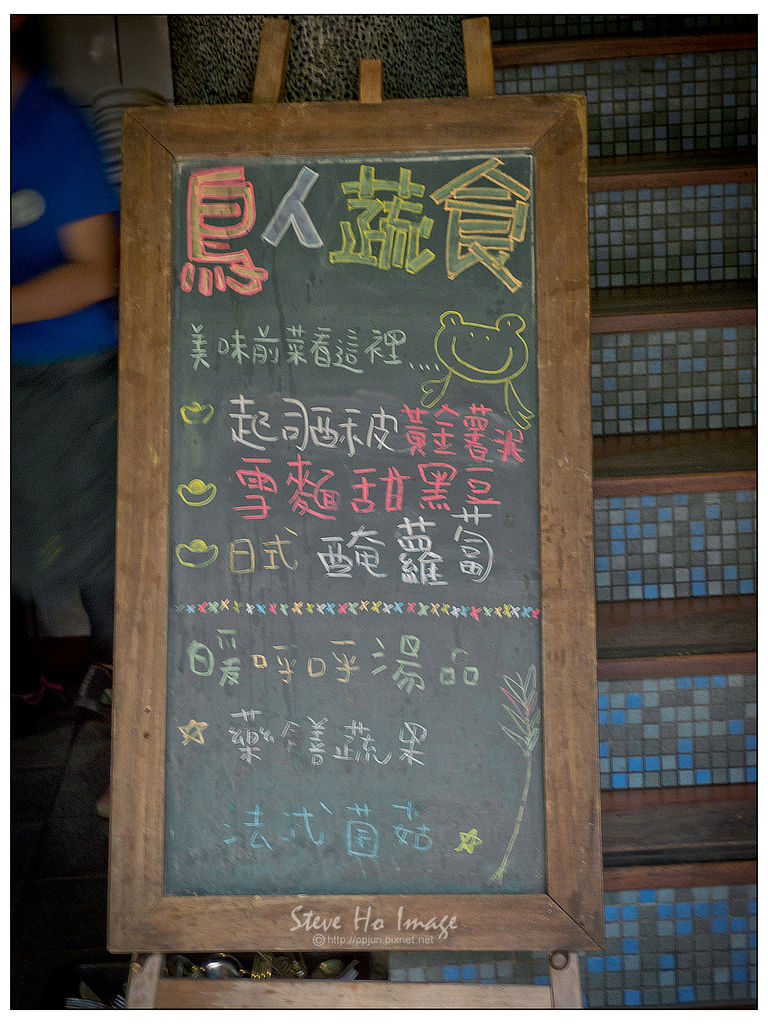 鳥人蔬食
美味前菜看這裡....
起司酥皮黃金薯泥
雪麵甜黑豆
日式 醃蘿蔔
暖呼呼湯品
藥膳蔬果
法式菌菇
Steve Ho Image
© http://ppjun.pixnet.net